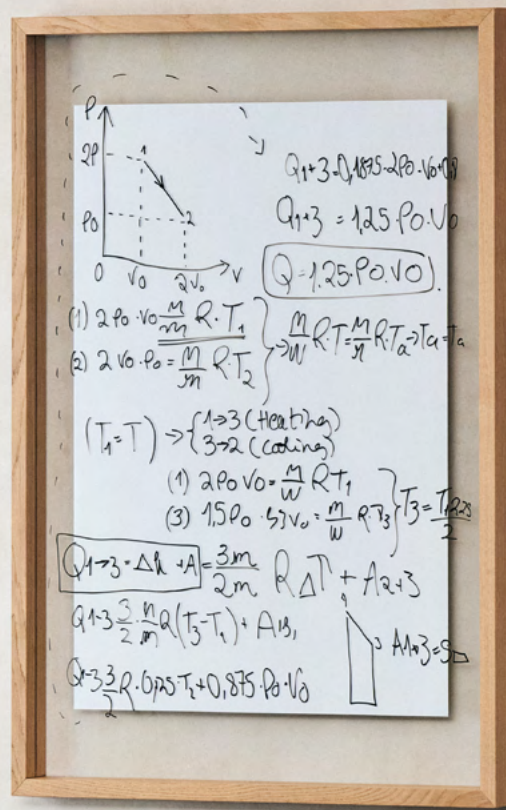 P
2P
1
P0
2
0
V0
2V0
V
Q1+3=0,1875·2P0·V0+0,8
Q1+3 = 1,25·P0·V0
Q=1.25·P0·V0).
(1) 2P0·V0 M/m R·T1
(2) 2V0·P0 = M/m R·T2
⇒ M/W R·T = M/M R·Ta → Ta = Ta
(T1=T) ⇒ { 1→3 (Heating)
3→2 (cooling)
(1) 2P0V0 = M/W RT1
(3) 1,5P0 · 53V0 = M/W R·T3
T3 =
2
Q1→3 = Δh + A = 3m/2m RΔT + A2+3
Q1-3 3/2 · n/m R(T3-T1) + A13,
3 A1+3=S
Q1-3 3/2 R·0,125·T2+0,875·P0·V0